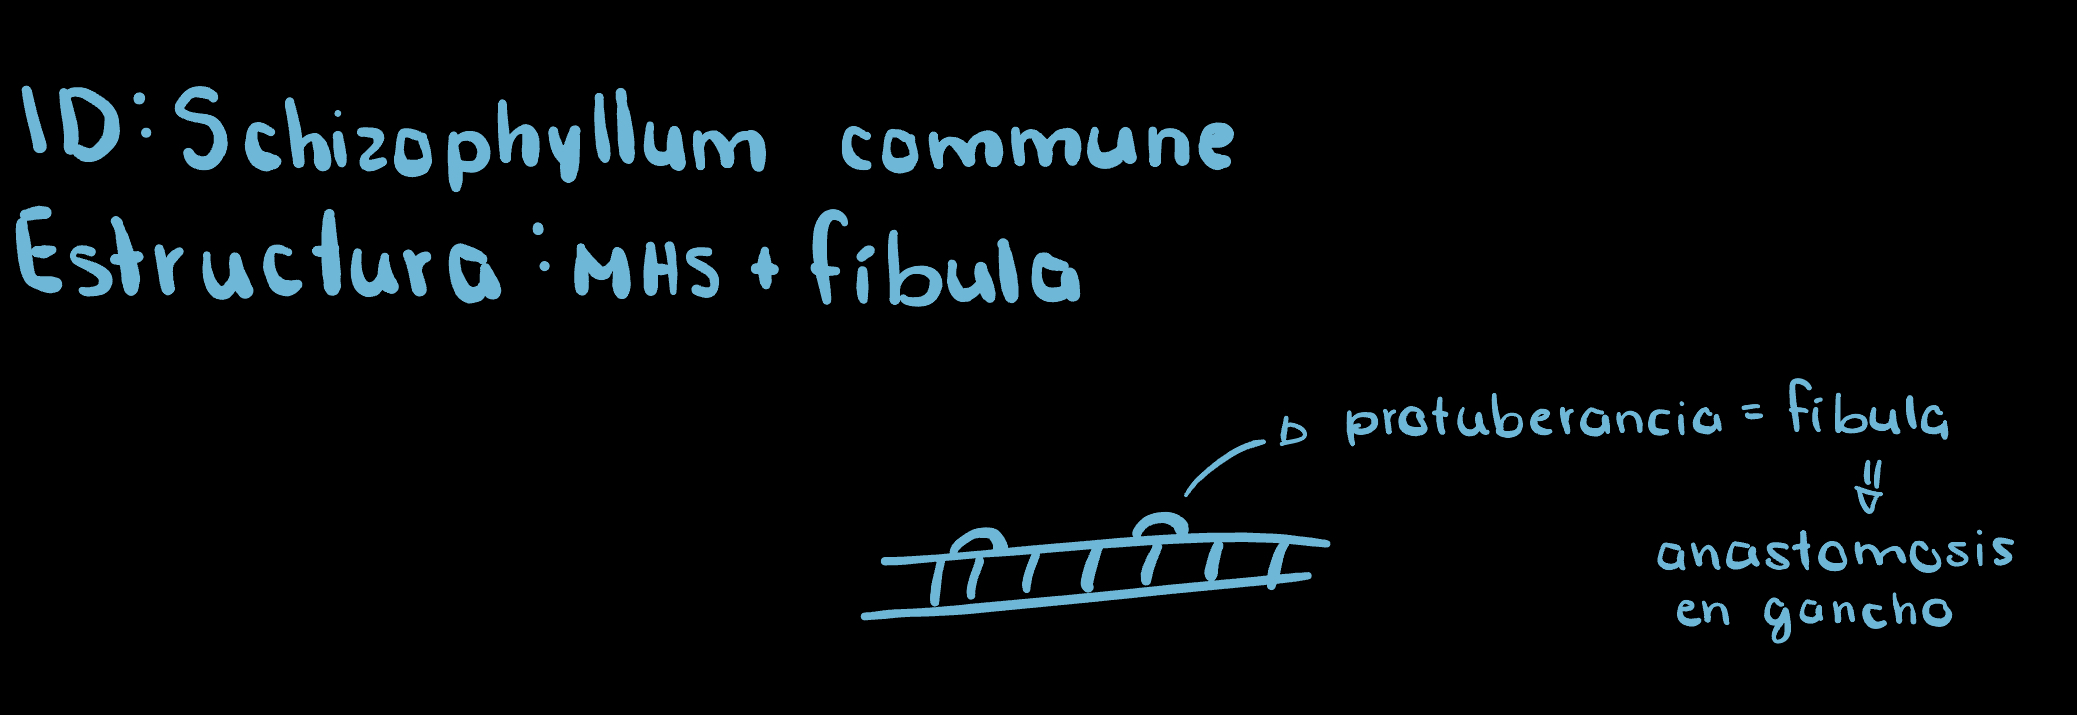 ID: Schizophyllum commune
Estructura: MHS + fíbula
protuberancia = fíbula
anastomosis
en gancho